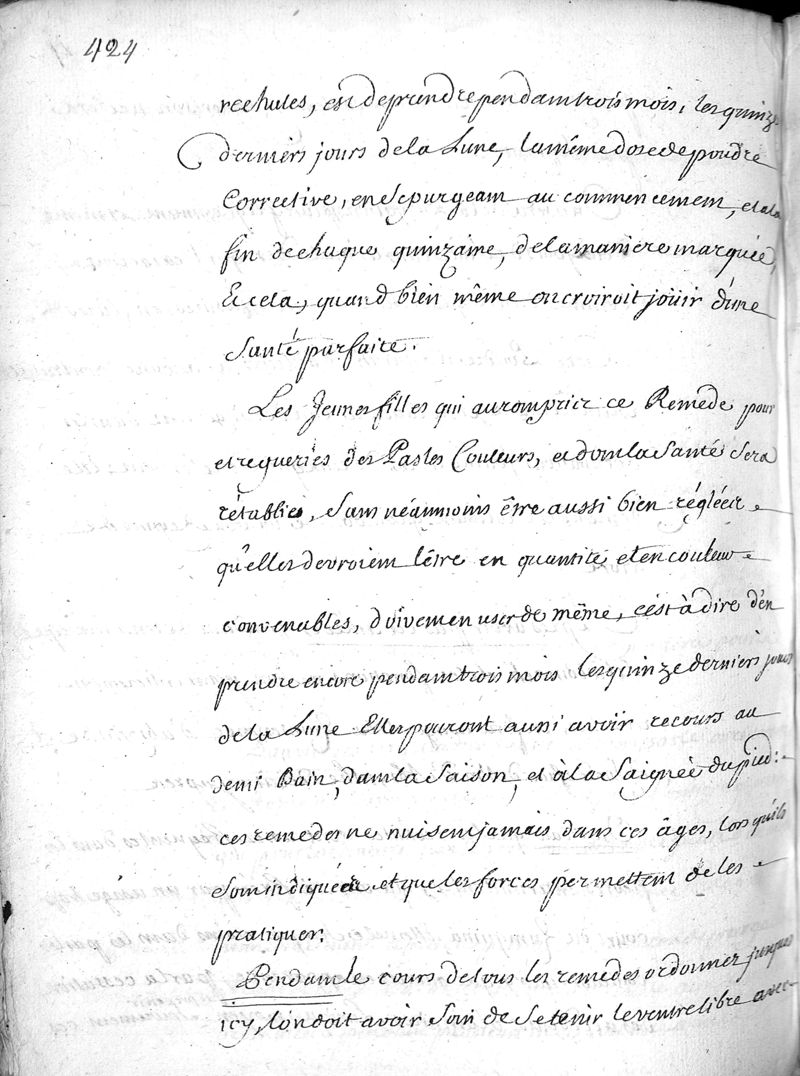 424
rechutes, est de prendre pendant trois mois, les quinze
derniers jours de la Lune, la même dose de poudre
Corrective, en se purgeant au commencement, et a la
fin de chaque quinzaine, de la maniere marquée,
Et cela, quand bien même on croiroit joüir d'une
Santé parfaite.
Les Jeunes filles qui auront pris ce Remède pour
etre gueries des Pasles Couleurs, et dont la Santé Sera
rétablie, Sans néanmoins être aussi bien réglées
qu'elles devroient l'être en quantité et en couleur
convenables, doivent en user de même, c'est à dire d'en
prendre encore pendant trois mois les quinze derniers jours
de la Lune Elles pouront aussi avoir recours au
demi Bain, dans la Saison, et à la Saignée du pied:
ces remedes ne nuisent jamais dans ces âges, lors qu'ils
Sont indiquées et que les forces permettent de les
pratiquer.
Pendant le cours de tous les remedes ordonnez jusques
icy, l'on doit avoir Soin de Se tenir le ventre libre avec